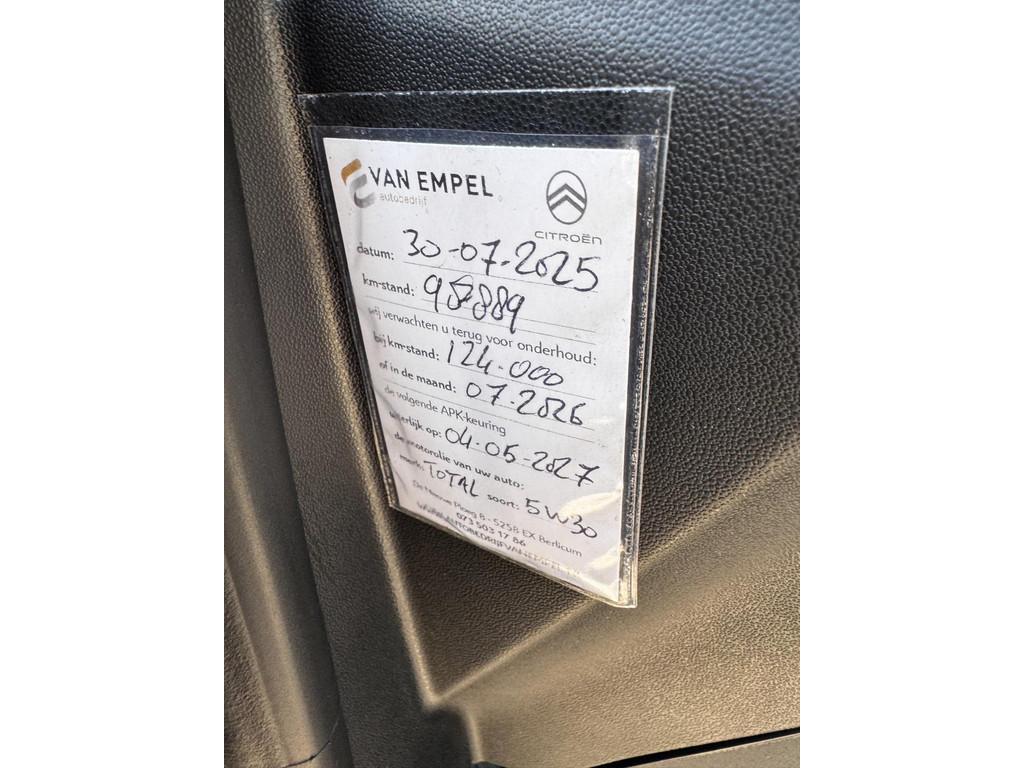 VAN EMPEL
autobedrijf
CITROËN
datum: 30-07-2025
km-stand: 98889
wij verwachten u terug voor onderhoud:
bij km-stand: 124.000
of in de maand: 07.2026
de volgende APK-keuring
uiterlijk op: 04-05-2027
de motorolie van uw auto:
merk: TOTAL soort: 5W30
De Nieuwe Ploeg 8 - 5258 EX Berlicum
073 503 17 86
WWW.AUTOBEDRIJFVANEMPEL.NL